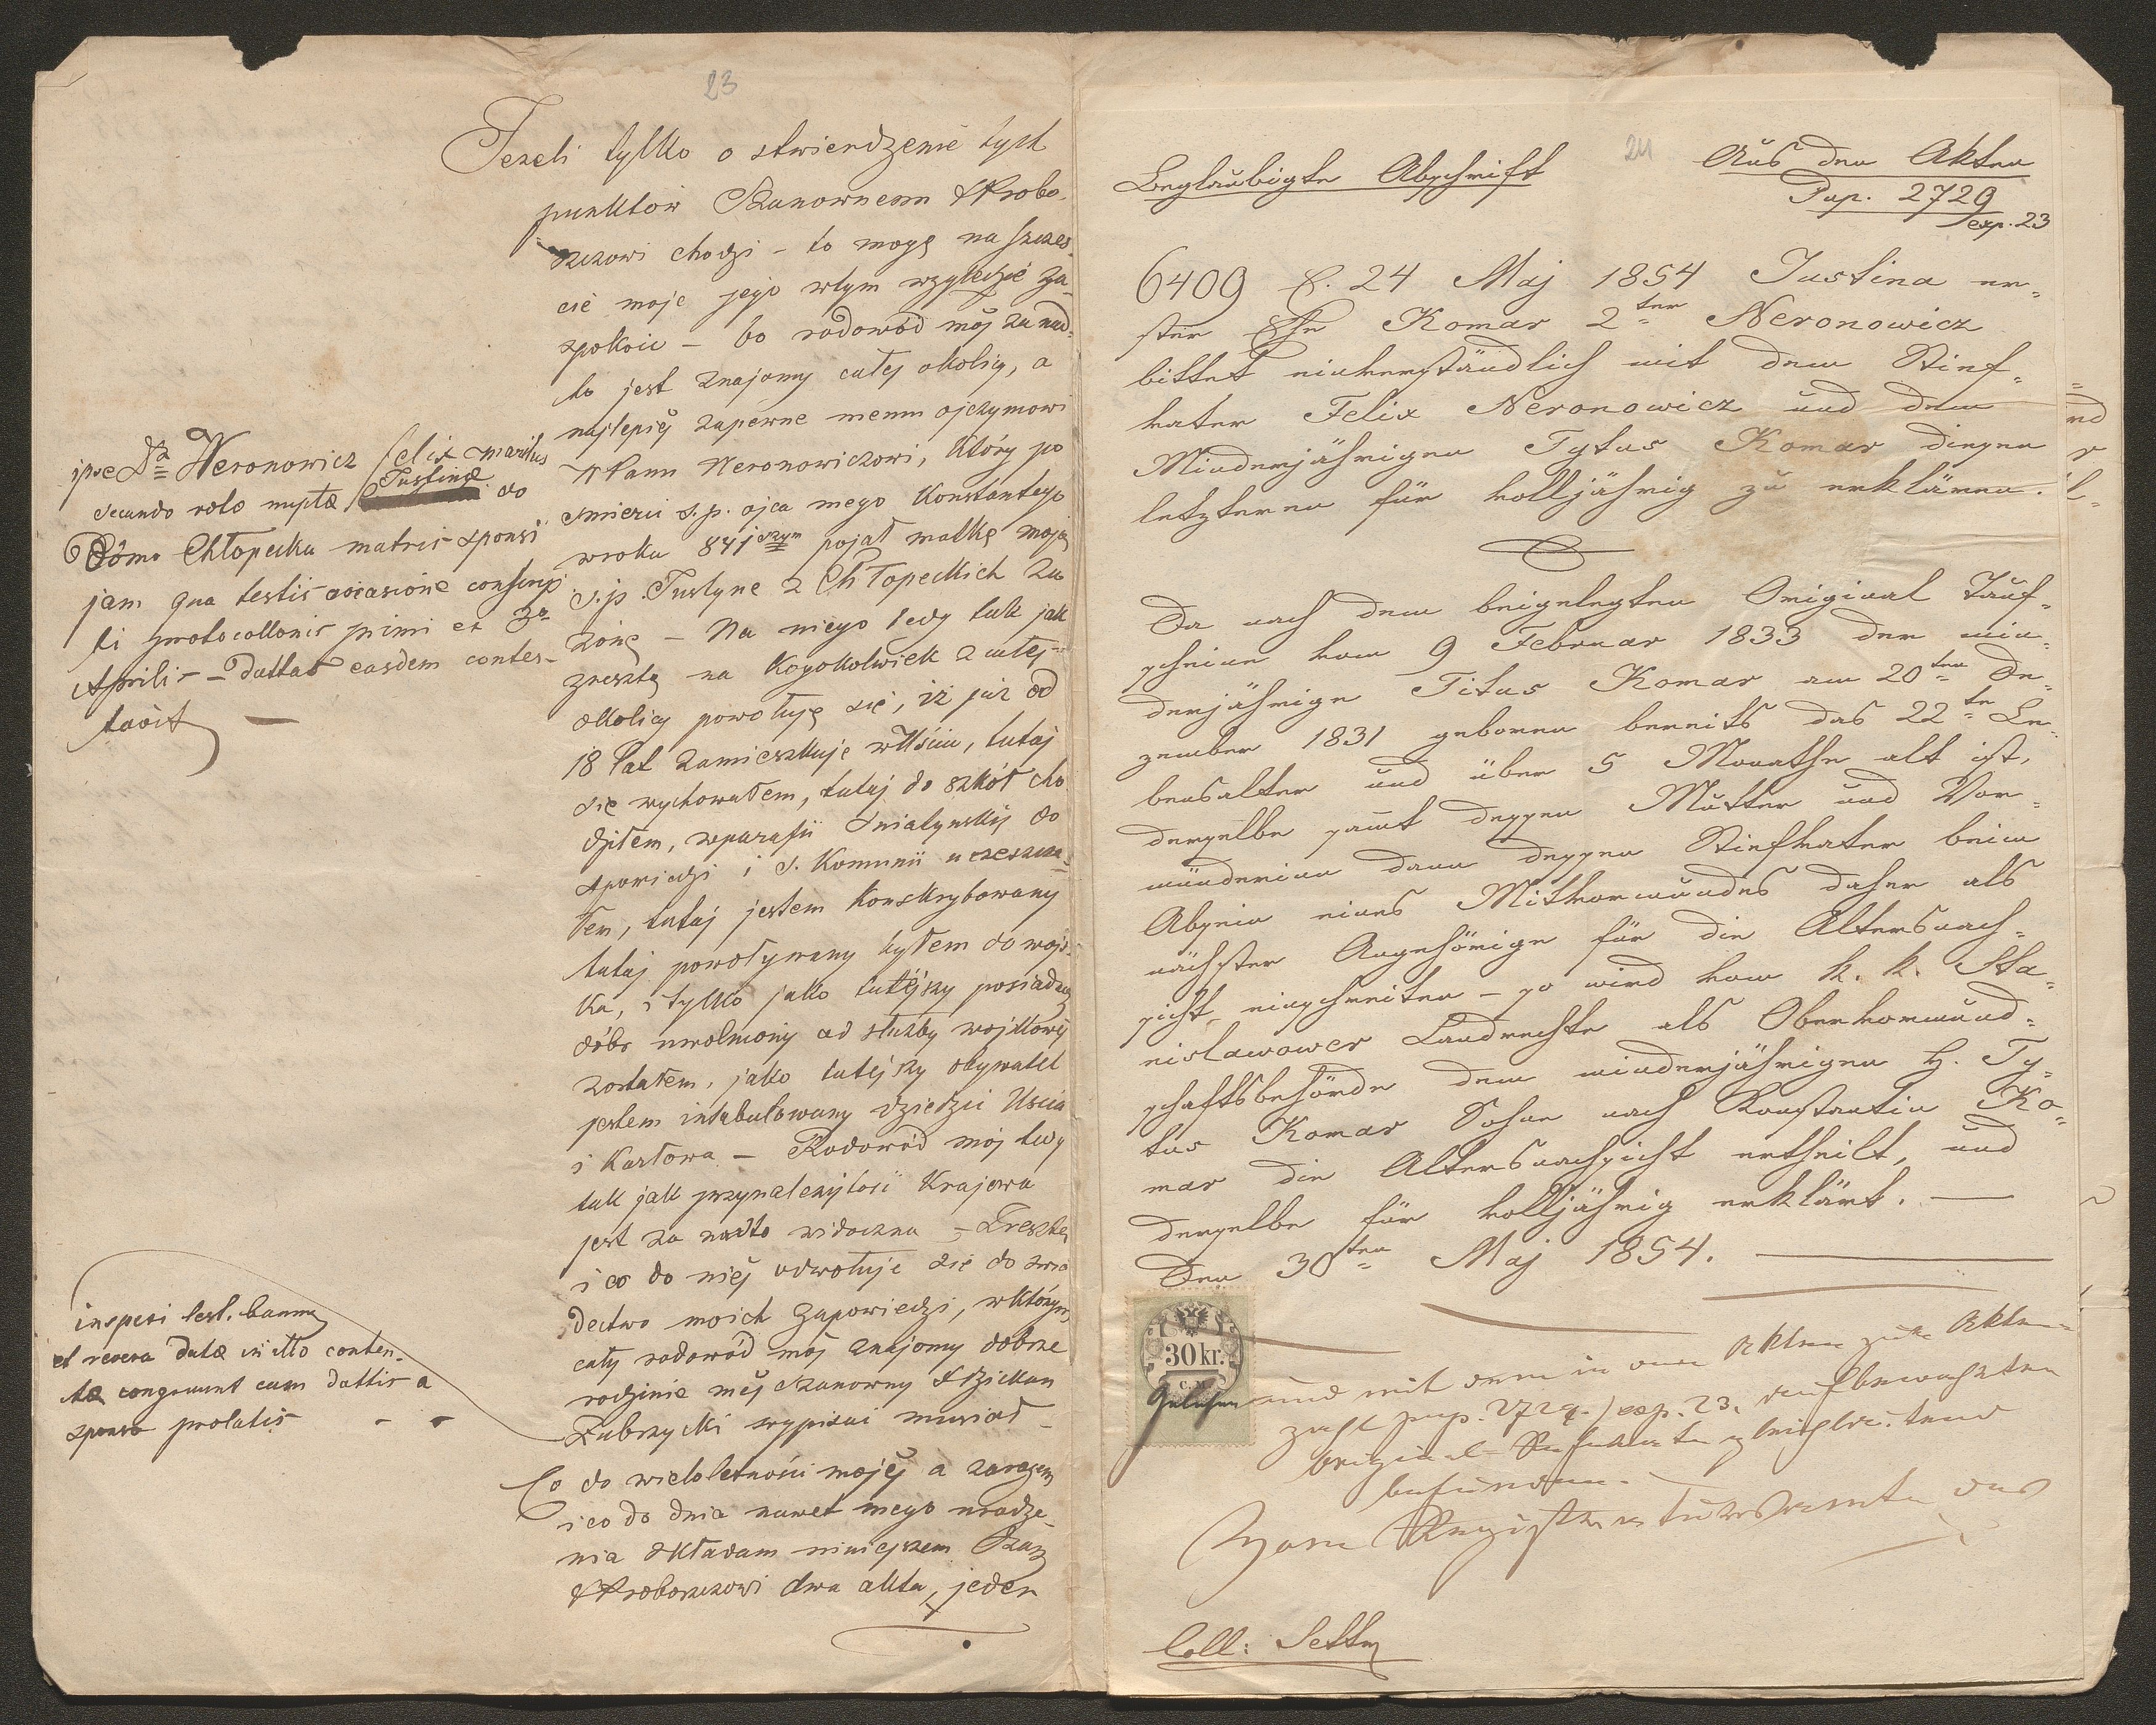 23
Jezeli tylko o stwierdzenie tych
punktów Szanownemu XProbo-
szczowi chodzi – to mogę na szczęś
cie moje jego wtym względzie za-
spokoic – bo rodowód mój za nad-
to jest znajomy całej okolicy, a
najlepiej zapewne memu ojczymowi
WPanu Neronowiczowi, który po
smierci s.p. ojca mego Konstantego
wroku 841szym pojął matkę moją
s.p. Justynę z Chłopeckich za
żonę – Na niego tedy tak jak
zresztą na kogokolwiek z całej
okolicy powołuję się, iż już od
18 lat zamieszkuję wUściu, tutaj
się wychowałem, tutaj do szkół cho
dziłem, wparafii Sniatynskiej do
spowiedzi i S. Komunii uczeszcza-
łem, tutaj jestem konskrybowany
tutaj powoływany byłem do wojs-
ka, i tylko jako tutéjszy posiadacz
dóbr uwolniony od służby wojskowej
zostałem, jako tutéjszy obywatel
jestem intabulowany dziedzic Uscia
i Karłowa – Rodowód mój tedy
tak jak przynależytość Krajowa
jest za nadto widoczna – Zresztą
i co do niéj odwołuję się do swia
dectwa moich zapowiedzi, wktórym
cały rodowód mój znajomy dobrze
rodzinie méj szanowny XDziekan
Zubrzycki wypisać musiał –
Co do wieloletności mojéj a zarazem
i co do dnia nawet mego urodze-
nia składam niniejszem Szan
XProboszczowi dwa akta, jeden
ipse Ds Neronowicz felix maritus
secundo voto nuptæ Justinæ do
Domo Chłopecka matris sponsi
jam qua testis occasione conscrip
ti protocollonis primi et 3a
Aprilis – Dattas easdem contes-
tavit –
inspexi test. bannor
et revera datæ in illo conten-
tæ congruunt cum dattis a
sponso prolatis – –
24
Beglaubigte Abschrift
Aus den Akten
Pup. 2729
exp. 23
6409 E. 24 Maj 1854 Justina er-
ster Ehe Komar 2ter Neronowicz
bittet einverständlich mit dem Stief-
vater Felix Neronowicz und dem
Minderjährigen Tytus Komar diesen
letzteren für volljährig zu erklären.
Da nach dem beigelegten Original Tauf-
scheine vom 9 Februar 1833 der min-
derjährige Titus Komar am 20ten De-
zember 1831 geboren bereits das 22te Le-
bensalter und über 5 Monathe alt ist,
derselbe samt dessen Mutter und Vor-
münderinn dann dessen Stiefvater beim
Absein eines Mitvormundes daher als
nächster Angehörige für die Altersnach-
sicht einschreiten – so wird vom k. k. Sta-
nislawower Landrechte als Obervormund-
schaftsbehörde dem minderjährigen H. Ty-
tus Komar Sohne nach Konstantin Ko-
mar die Altersnachsicht ertheilt, und
derselbe für volljährig erklärt. –
Den 30ten Maj 1854. –
30 kr.
C.M.
Gelesen und mit dem in den Akten zur Akten-
zahl pup. 2729./exp. 23. aufbewahrten
Original-Referate gleichlautend
befunden.
Vom Registratursamte des
Coll: Settm